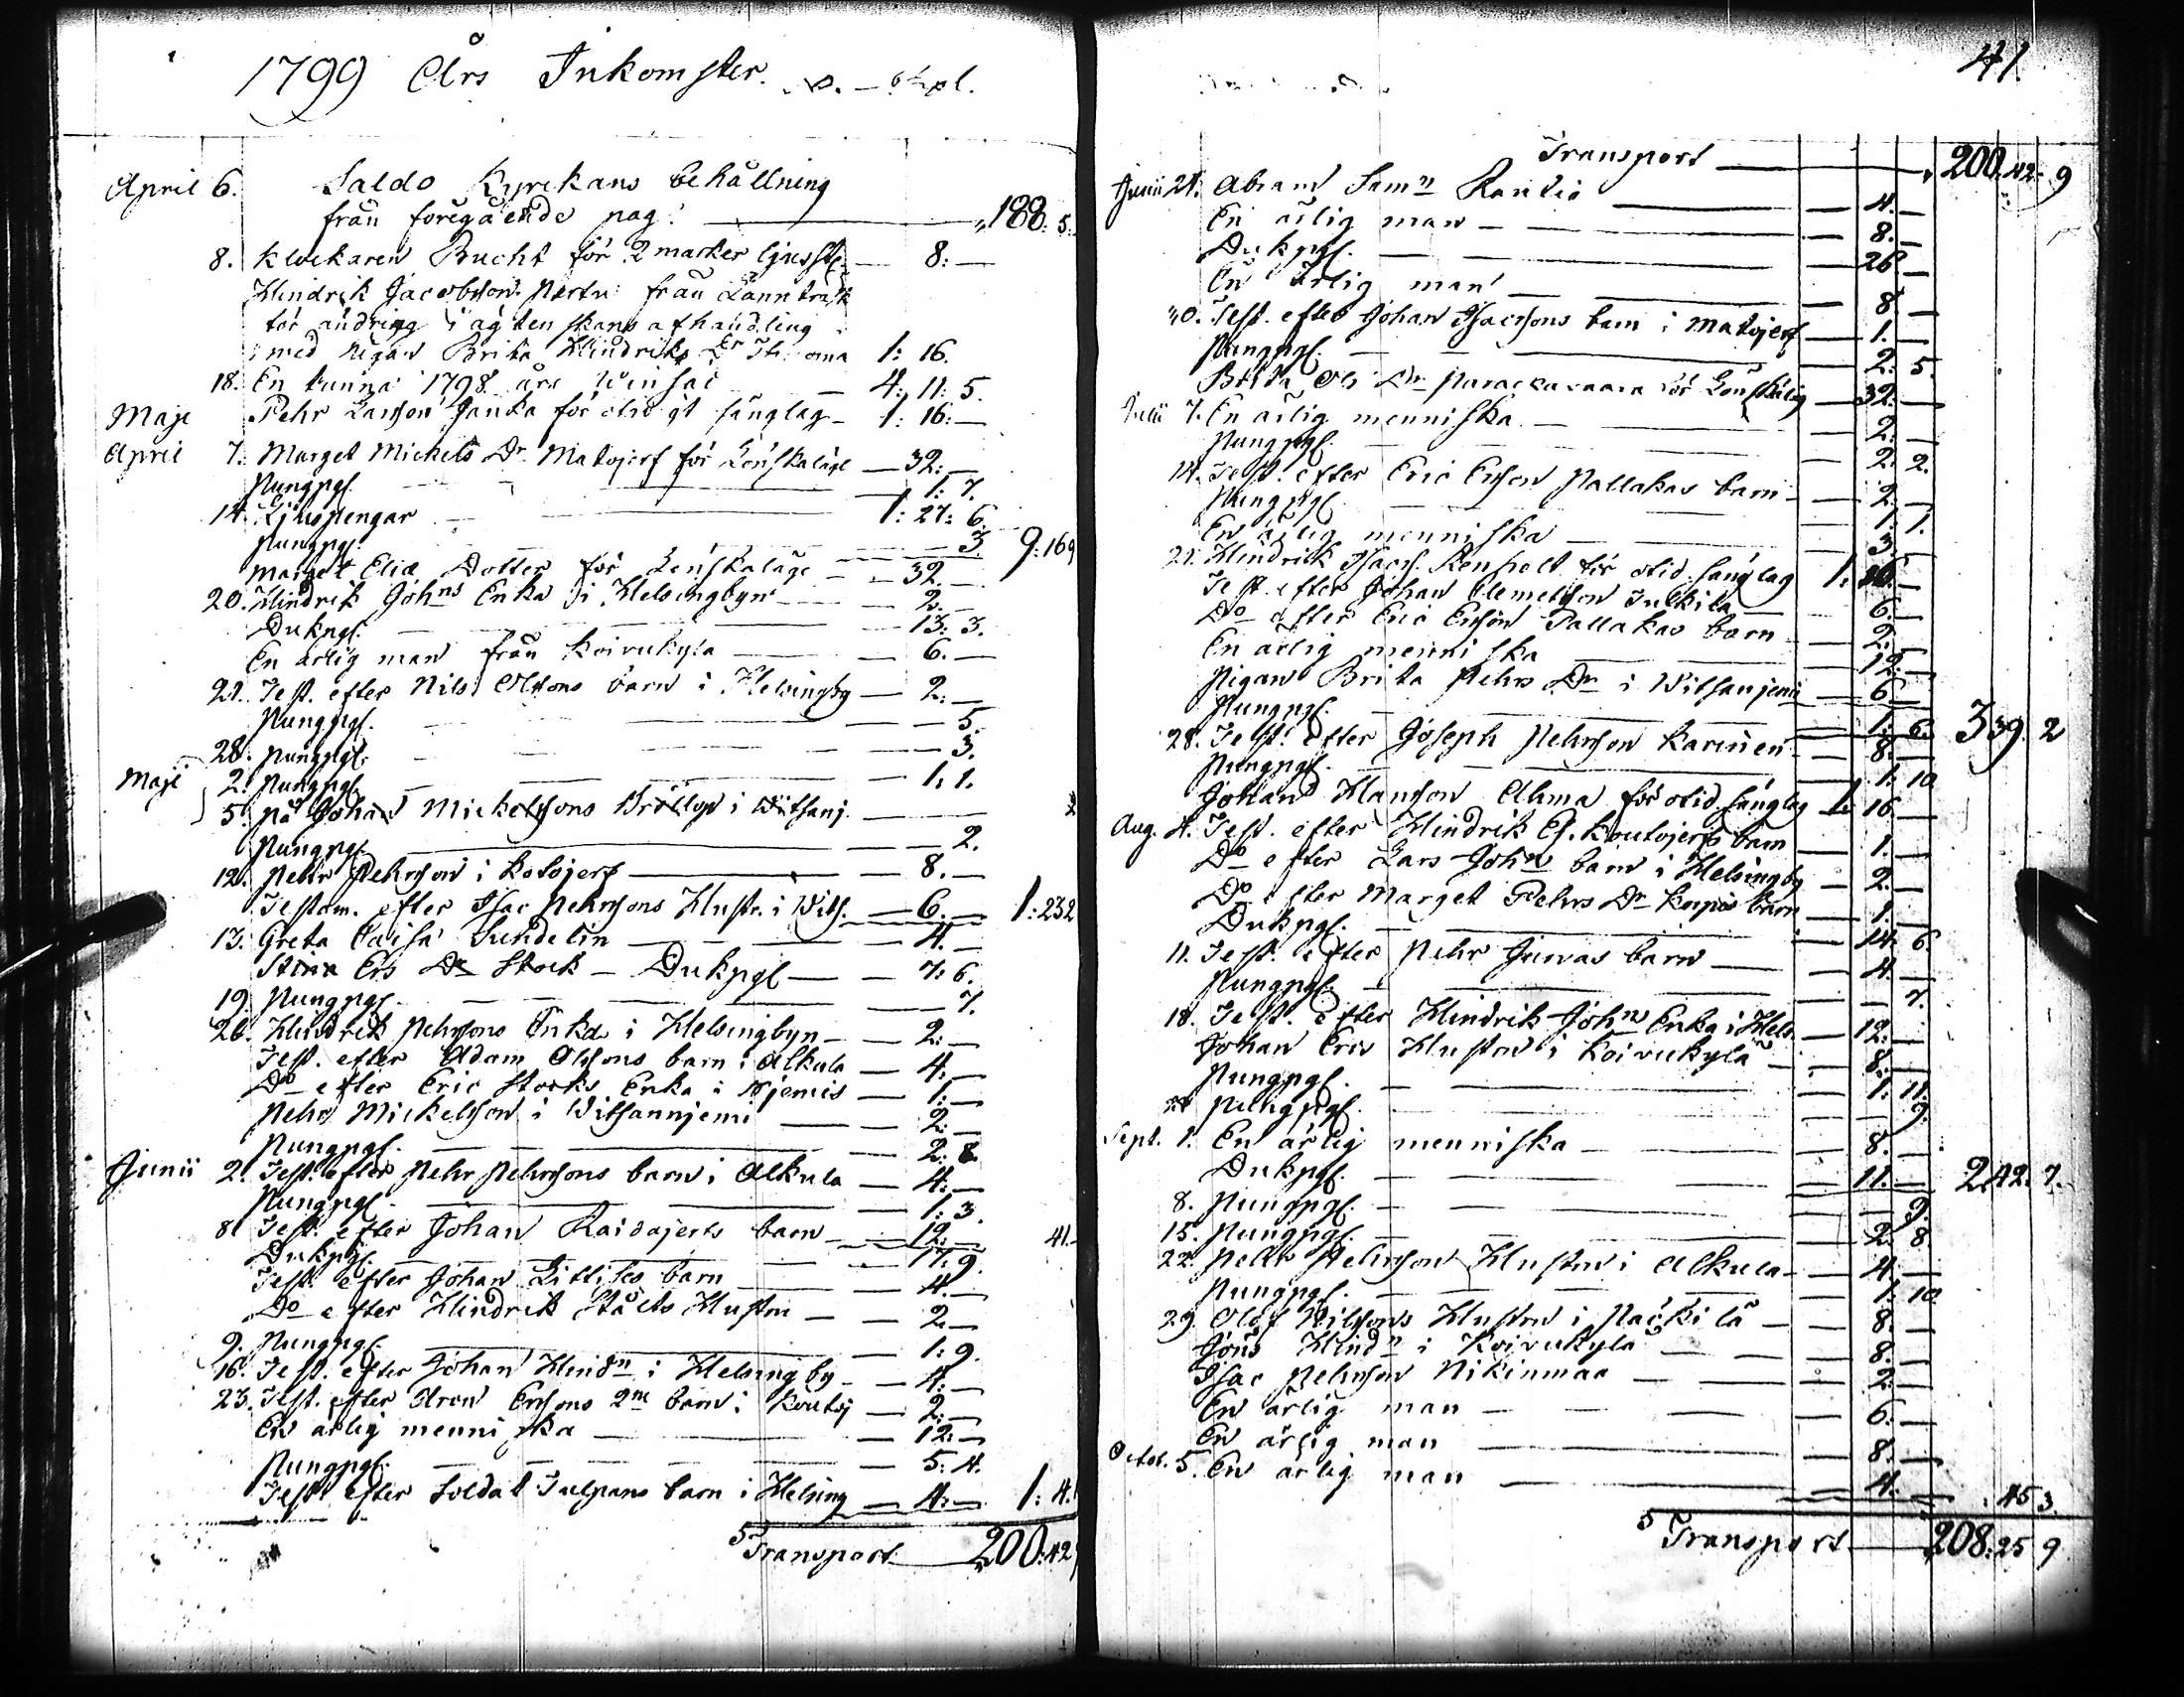 1799 Års Inkomster.
April 6. Saldo Kyrckans behållning
från foregående pag: 188: 5.
8. Klockaren Bucht för 2 marker ljusst. — 8: —
Hindrik Jacobsson från Lannträsk
för ändring i ägtenskaps afhandling
med pigan Brita Hindriks Dr 1: 16.
18. En tunna 1798 års 4: 11: 5.
Maji Pehr Larsson Janka för otidigt sänglag — 1: 16: —
April 7. Marget Michels Dr Matojerf för Lönskaläge — 32: —
Pungpgr. — 1: 7.
14. Ljuspengar — 1: 27: 6.
Pungpgr. — 3. 9: 16 9
Marget Eliæ Dotter för Lönskaläge — 32. —
20. Hindrik Johns Enka i Helsingbyn — 2. —
Dukpgr. — 13: 3.
En ärlig man från Koivukyla — 6. —
21. Test. efter Nils Olssons barn i Helsingby — 2: —
Pungpgr. — 5.
28. Pungpgr. — 3.
Maji 2. Pungpgr. — 1: 1.
5. på Johan Mickelssons Bröllop i Witsanj. —
Pungpgr. — 2.
12. Pehr Pehrsson i Kotojerf — 8. —
Testam. efter Isac Pehrssons Hustr. i Wits. — 6. — 1: 23 2
13. Greta Caisa Sundelin — 4. —
Stina Ers Dr Stock — Dukpgr — 7: 6.
19. Pungpgr. — 7.
26. Hindrik Pehrssons Enka i Helsingbyn — 2: —
Test. efter Adam Olssons barn i Alkula — 4: —
Do efter Eric Stocks Enka i Njemis — 1: —
Pehr Mickelsson i Witsanniemi — 2: —
Pungpgr. — 2: 8.
Junii 2. Test. efter Pehr Pehrssons barn i Alkula — 4: —
Pungpgr. — 1: 3.
8. Test. efter Johan Raidajerfs barn — 12: — 41. —
Dukpgr. — 17: 9.
Test. efter Johan barn — 4. —
Do efter Hindrik Ståltz Hustru — 2. —
9. Pungpgr. — 1: 9.
16. Test. efter Johan Hindn i Helsingby — 4. —
23. Test. efter Aron Erssons 2ne barn i Koutoj — 2: —
En ärlig menniska — 12: —
Pungpgr. — 5: 4.
Test. efter Soldat Tulpans barn i Helsing — 4. — 1: 4.
Transport. 200: 42
41.
Transport — 200. 42. 9
Junii 24. Abram Samn Rantio — 4. —
En ärlig man — 8. —
Dukpgr. — 26 —
En Ärlig man — 8 —
30. Test. efter Johan Isacssons barn i Matojerf — 1. —
Pungpgr. — 2: 5.
Brita Ols Dr för Lönskaläg — 32: —
Julii 7. En ärlig menniska — 2: —
Pungpgr. — 2. 2.
14. Test. efter Eric Ersson Pallakas barn — 2. —
Pungpgr. — 1: 1.
En ärlig menniska — 3. —
21. Hindrick Isacss. för otid. sänglag 1: 16. —
Test. efter Johan Clemetsson Juckila — 6. —
Do efter Eric Ersson Pallakas barn — 2. —
En ärlig menniska — 12. —
Pigan Brita Pehrs Dr i Witsaniemi — 6 —
Pungpgr. — 1: 6. 3 39. 2
28. Test. efter Joseph Pehrsson Karinen — 8. —
Pungpgr. — 1: 10
Johan Hansson Alama för otid. sänglag 1. 16. —
Aug. 4. Test. efter Hindrik Koutojerfs barn — 1. —
Do efter Lars Johns barn i Helsingby — 2. —
Do efter Marget Pehrs Dr barn — 1. —
Dukpgr. — 14. 6.
11. Test. efter Pehr Junas barn — 4. —
Pungpgr. — 7.
18. Test. efter Hindrik Johns Enka i Hels. — 12. —
Johan Ers Hustru i Koivukylä — 8. —
Pungpgr. — 1: 11.
Pungpgr. — 9.
Sept. 1. En ärlig menniska — 8. —
Dukpgr. — 11. — 2. 42. 7.
8. Pungpgr. — 9.
15. Pungpgr. — 2. 8.
22. Pehr Pehrsson Hustru i Alkula — 4. —
Pungpgr. — 1: 10
29. Olof Nilssons Hustru i Päckilä — 8. —
Jöns Hindn i Koivukylä — 8. —
Isac Pehrsson Nikinmaa — 2. —
En ärlig man — 6. —
En ärlig man — 8. —
Octob. 5. En ärlig man — 4. — 45 3.
Transport — 208: 25 9